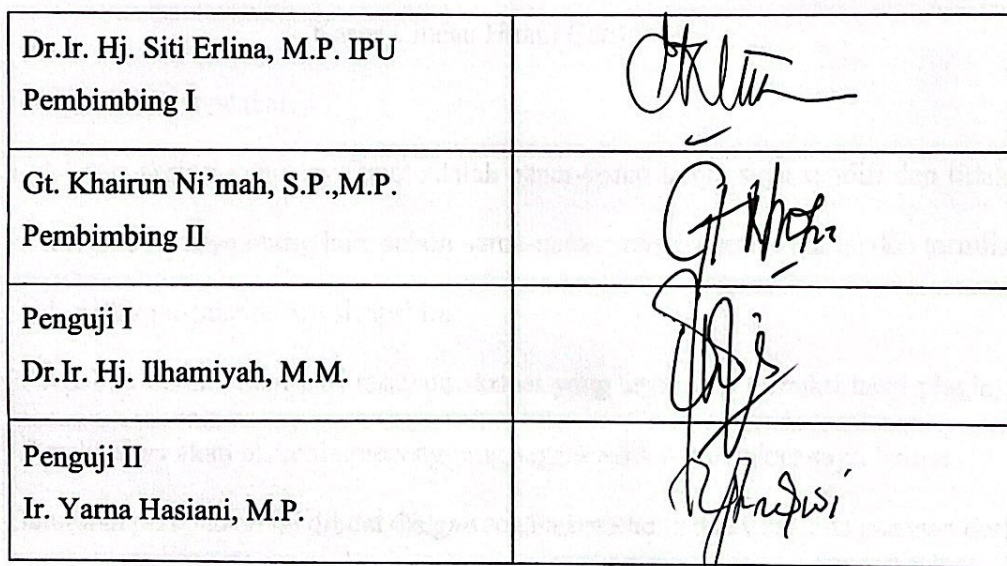 Dr.Ir. Hj. Siti Erlina, M.P. IPU
Pembimbing I
Gt. Khairun Ni’mah, S.P.,M.P.
Pembimbing II
Penguji I
Dr.Ir. Hj. Ilhamiyah, M.M.
Penguji II
Ir. Yarna Hasiani, M.P.